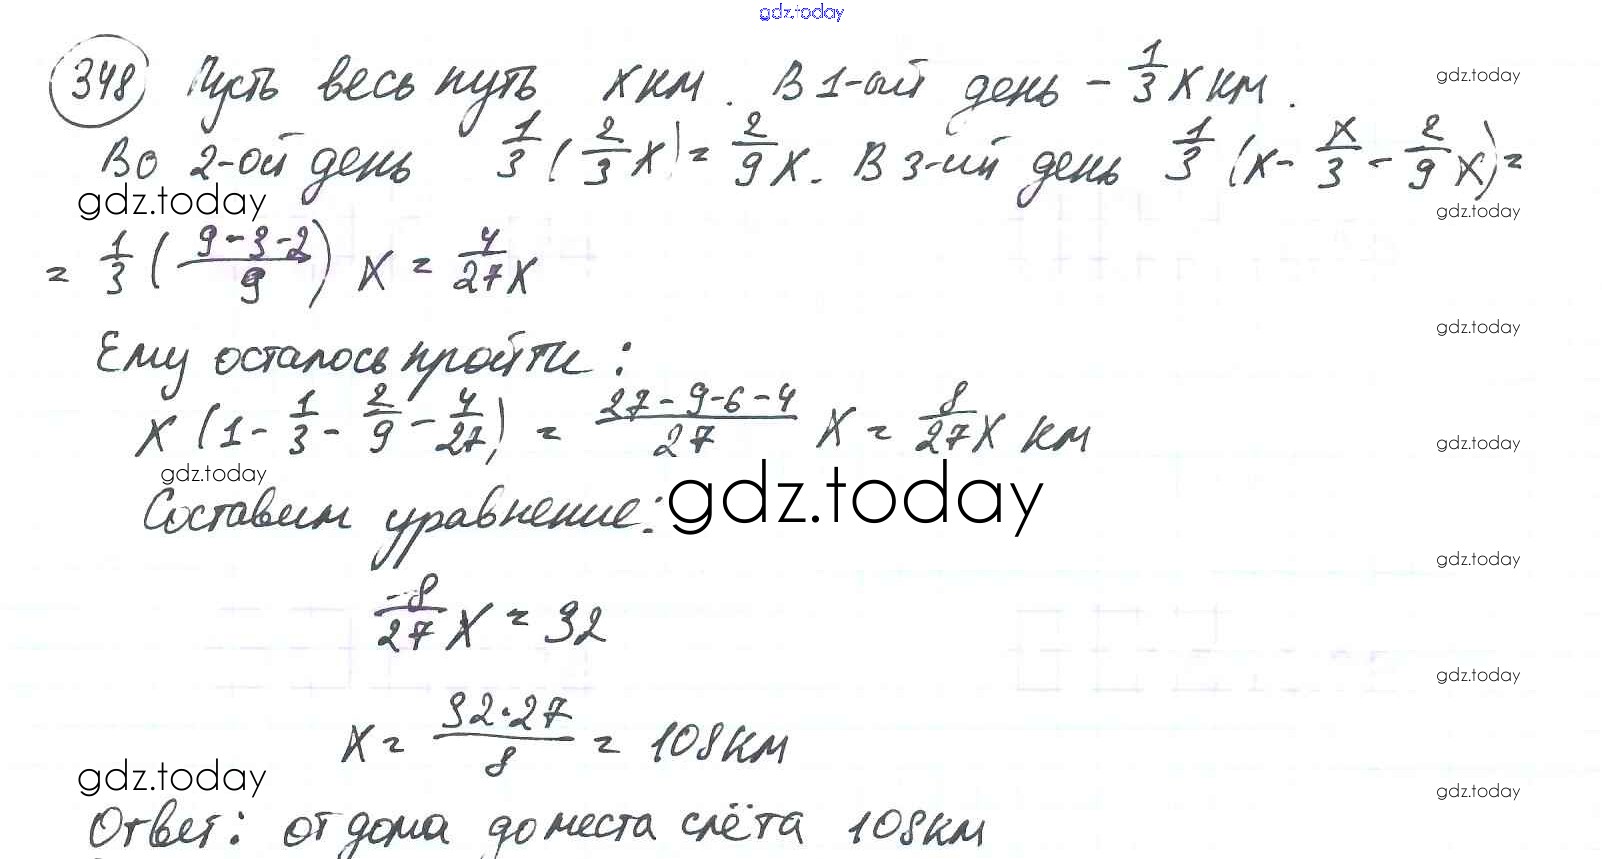 gdz.today
348 Пусть весь путь x км. В 1-ый день - 1/3 x км.
gdz.today
Во 2-ой день 1/3 (2/3 x) = 2/9 x. В 3-ий день 1/3 (x - x/3 - 2/9 x) =
gdz.today
gdz.today
= 1/3 ((9-3-2)/9) x = 4/27 x
gdz.today
Ему осталось пройти:
x (1 - 1/3 - 2/9 - 4/27) = (27-9-6-4)/27 x = 8/27 x км
gdz.today
gdz.today
Составим уравнение:
gdz.today
gdz.today
8/27 x = 32
gdz.today
x = (32·27)/8 = 108 км
gdz.today
gdz.today
Ответ: от дома до места слёта 108 км